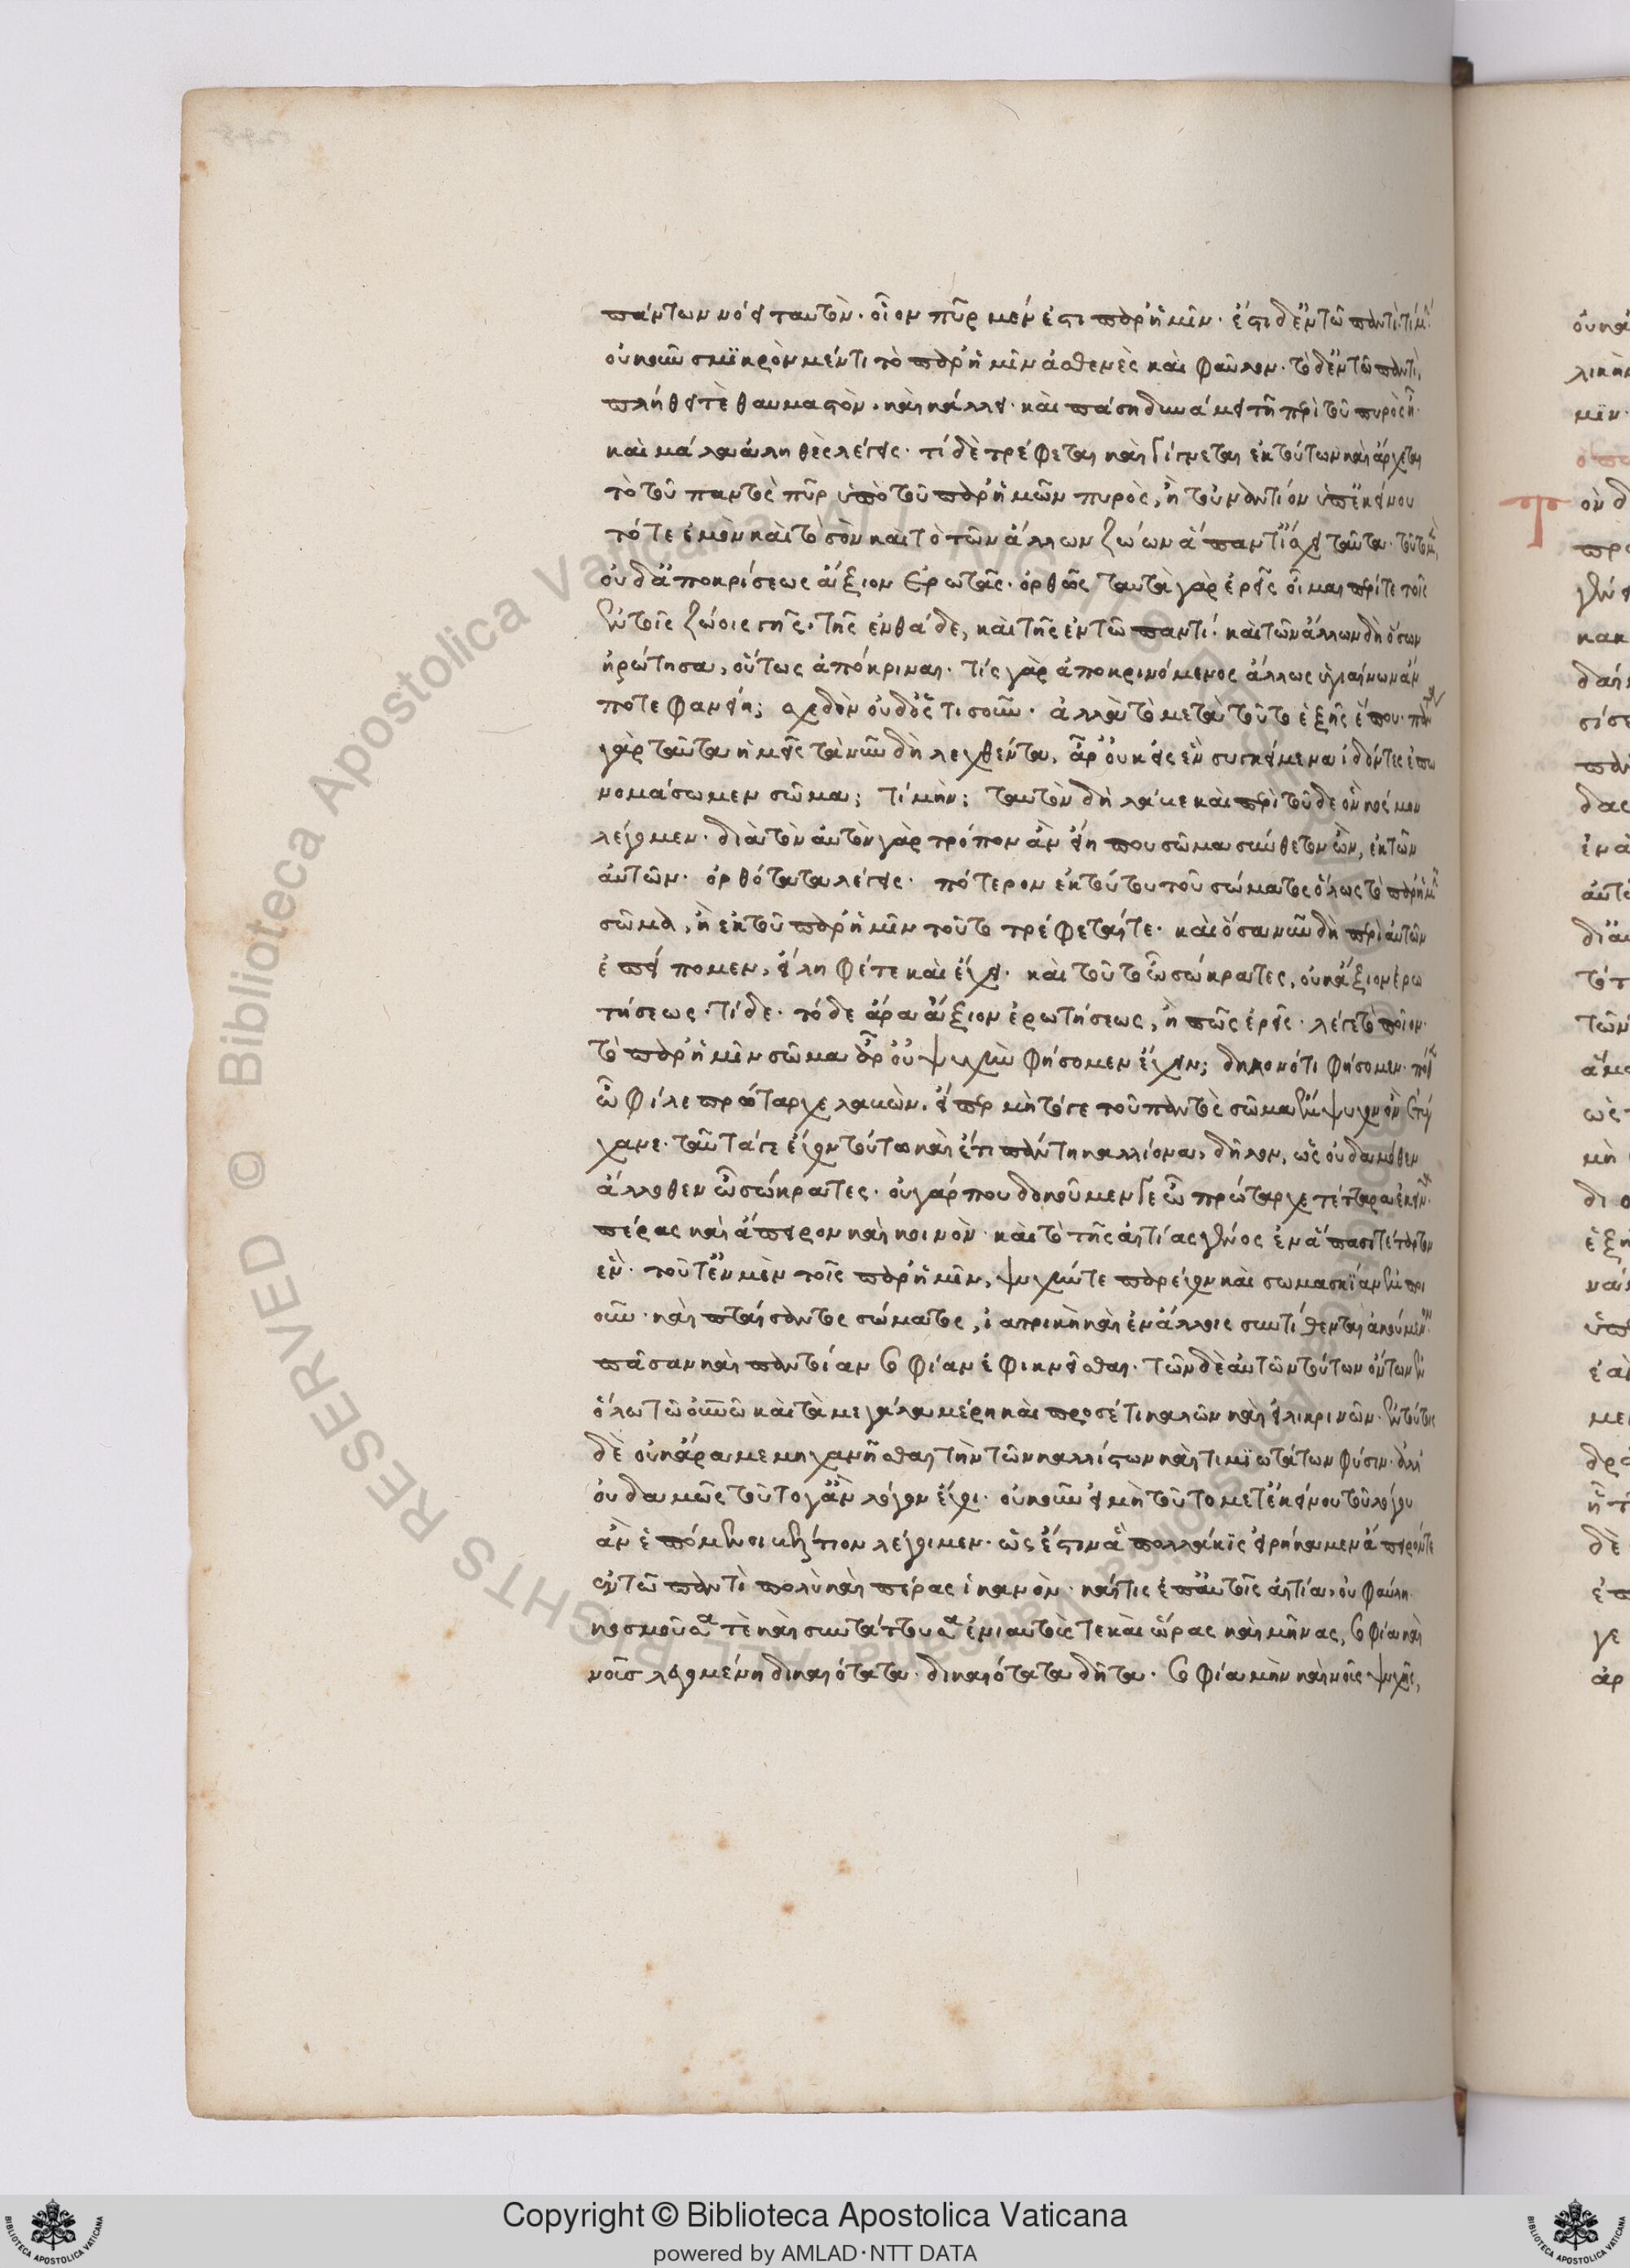 πάντων νόει ταυτὸν. οἷον πῦρ μέν ἐστι παρ' ἡμῖν. ἔστι δ' ἐν τῶ παντί. τί μήν
οὐκοῦν σμικρὸν μέν τι τὸ παρ' ἡμῖν ἀσθενὲς καὶ φαῦλον. τὸ δ' ἐν τῶ παντὶ,
πλήθει τὲ θαυμαστὸν. καὶ κάλλει. καὶ πάση δυνάμει τῆ περὶ τὸ πυρὸς ἦ.
καὶ μάλα ἀληθὲς λέγεις. τί δὲ τρέφεται καὶ γίγνεται ἐκ τούτων καὶ ἄρχεται
τὸ τοῦ παντὸς πῦρ ὑπὸ τοῦ παρ' ἡμῶν πυρὸς, ἢ τοὐναντίον ὑπ' ἐκείνου
τό τε ἐμὸν καὶ τὸ σὸν καὶ τὸ τῶν ἄλλων ζώων ἅπαντ' ἴσχει ταῦτα. τοῦτο μὲν
οὐδ' ἀποκρίσεως ἄξιον ἐρωτᾶς. ὀρθῶς ταυτὰ γὰρ ἐρεῖς οἶμαι περί τε τοῖς
ἐν τοῖς ζώοις γῆς. τῆς ἐνθάδε, καὶ τῆς ἐν τῶ παντί. καὶ τῶν ἄλλων δὴ ὅσων
ἠρώτησα, οὕτως ἀπόκριναι. τίς γὰρ ἀποκρινόμενος ἄλλως ὑγιαίνων ἄν
ποτε φανείη; σχεδὸν οὐδ' ὅς τις οὖν. ἀλλὰ τὸ μετὰ τοῦτο ἑξῆς ἕπου. πάντα
γὰρ ταῦτα ἡμεῖς τὰ νῦν δὴ λεχθέντα. ἆρ' οὐκ εἰς ἓν συγκείμενα ἰδόντες ἐπω
νομάσωμεν σῶμα; τί μὴν; ταυτὸν δὴ λάβε καὶ περὶ τοῦδε ὃν κόσμον
λέγομεν. διὰ τὸν αὐτὸν γὰρ τρόπον ἂν εἴη που σῶμα σύνθετον ὢν, ἐκ τῶν
αὐτῶν. ὀρθότατα λέγεις. πότερον ἐκ τούτου τοῦ σώματος ὅλως τὸ παρ' ἡμῖν
σῶμα, ἢ ἐκ τοῦ παρ' ἡμῖν τοῦτο τρέφεταί τε. καὶ ὅσα νῦν δὴ περὶ αὐτῶν
ἐπείπομεν, εἴληφέ τε καὶ ἔχει. καὶ τοῦτ' ὦ σώκρατες, οὐκ ἄξιον ἐρω
τήσεως. τί δε. τόδε ἆρα ἄξιον ἐρωτήσεως, ἢ πῶς ἐρεῖς. λέγε τὸ ποῖον.
τὸ παρ' ἡμῖν σῶμα ἆρ' οὐ ψυχὴν φήσομεν ἔχειν; δηλονότι φήσομεν. πόθεν
ὦ φίλε πρώταρχε λαβὼν. εἴπερ μὴ τό γε τοῦ παντὸς σῶμα ἔμψυχον ὂν ἐτύγ
χανε. ταὐτά γε ἔχον τούτω καὶ ἔτι πάντη καλλίονα. δῆλον, ὡς οὐδαμόθεν
ἄλλοθεν ὦ σώκρατες. οὐ γάρ που δοκοῦμεν γε ὦ πρώταρχε τέτταρα ἐκεῖνα.
πέρας καὶ ἄπειρον καὶ κοινὸν καὶ τὸ τῆς αἰτίας γένος ἐν ἅπασι τέταρτον
ἓν. τοῦτ' ἐν μὲν τοῖς παρ' ἡμῖν, ψυχήν τε παρέχον καὶ σωμασκίαν ἐμποι
οῦν. καὶ πταίσαντος σώματος, ἰατρικὴν καὶ ἐν ἄλλοις συντιθὲν καὶ ἀκούμενον.
πᾶσαν καὶ παντοίαν σοφίαν ἐφικνεῖσθαι. τῶν δὲ αὐτῶν τούτων ὄντων ἐν
ὅλω τῶ οὐνῶ καὶ τὰ μεγάλα μέρη καὶ προσέτι καλῶν καὶ εἰλικρινῶν. ἐν τούτοις
δὲ οὐκ ἄρα μεμηχανῆσθαι τὴν τῶν καλλίστων καὶ τιμιωτάτων φύσιν. ἀλλ'
οὐδαμῶς τοῦτο γ' ἂν λόγον ἔχοι. οὐκοῦν εἰ μὴ τοῦτο μετ' ἐκείνου τοῦ λόγου
ἂν ἑπόμενοι βέλτιον λέγοιμεν. ὡς ἔστιν ἃ πολλάκις εἰρήκαμεν ἄπειρόν τε
ἐν τῶ παντὶ πολὺ καὶ πέρας ἱκανὸν. καί τις ἐπ' αὐτοῖς αἰτία, οὐ φαύλη.
κοσμοῦσα τὲ καὶ συντάττουσα ἐνιαυτούς τε καὶ ὥρας καὶ μῆνας, σοφία καὶ
νοῦς λεγομένη δικαιότατα. δικαιότατα δῆτα. σοφία μὴν καὶ νοῦς ψυχῆς,
Copyright © Biblioteca Apostolica Vaticana
powered by AMLAD·NTT DATA